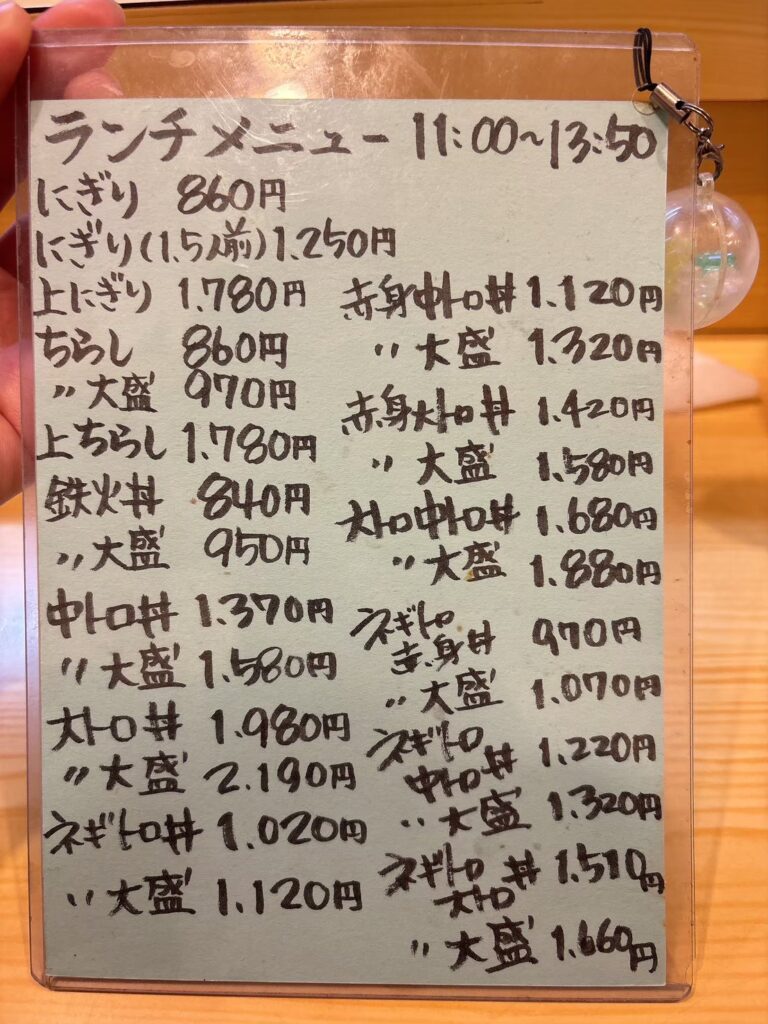 ランチメニュー 11:00~13:50
にぎり 860円
にぎり(1.5人前)1.250円
上にぎり 1.780円
ちらし 860円
〃大盛 970円
上ちらし 1.780円
鉄火丼 840円
〃大盛 950円
中トロ丼 1.370円
〃大盛 1.580円
大トロ丼 1.980円
〃大盛 2.190円
ネギトロ丼 1.020円
〃大盛 1.120円
赤身中トロ丼 1.120円
〃大盛 1.320円
赤身大トロ丼 1.420円
〃大盛 1.580円
大トロ中トロ丼 1.680円
〃大盛 1.880円
ネギトロ
赤身丼 970円
〃大盛 1.070円
ネギトロ
中トロ丼 1.220円
〃大盛 1.320円
ネギトロ
大トロ丼 1.510円
〃大盛 1.660円